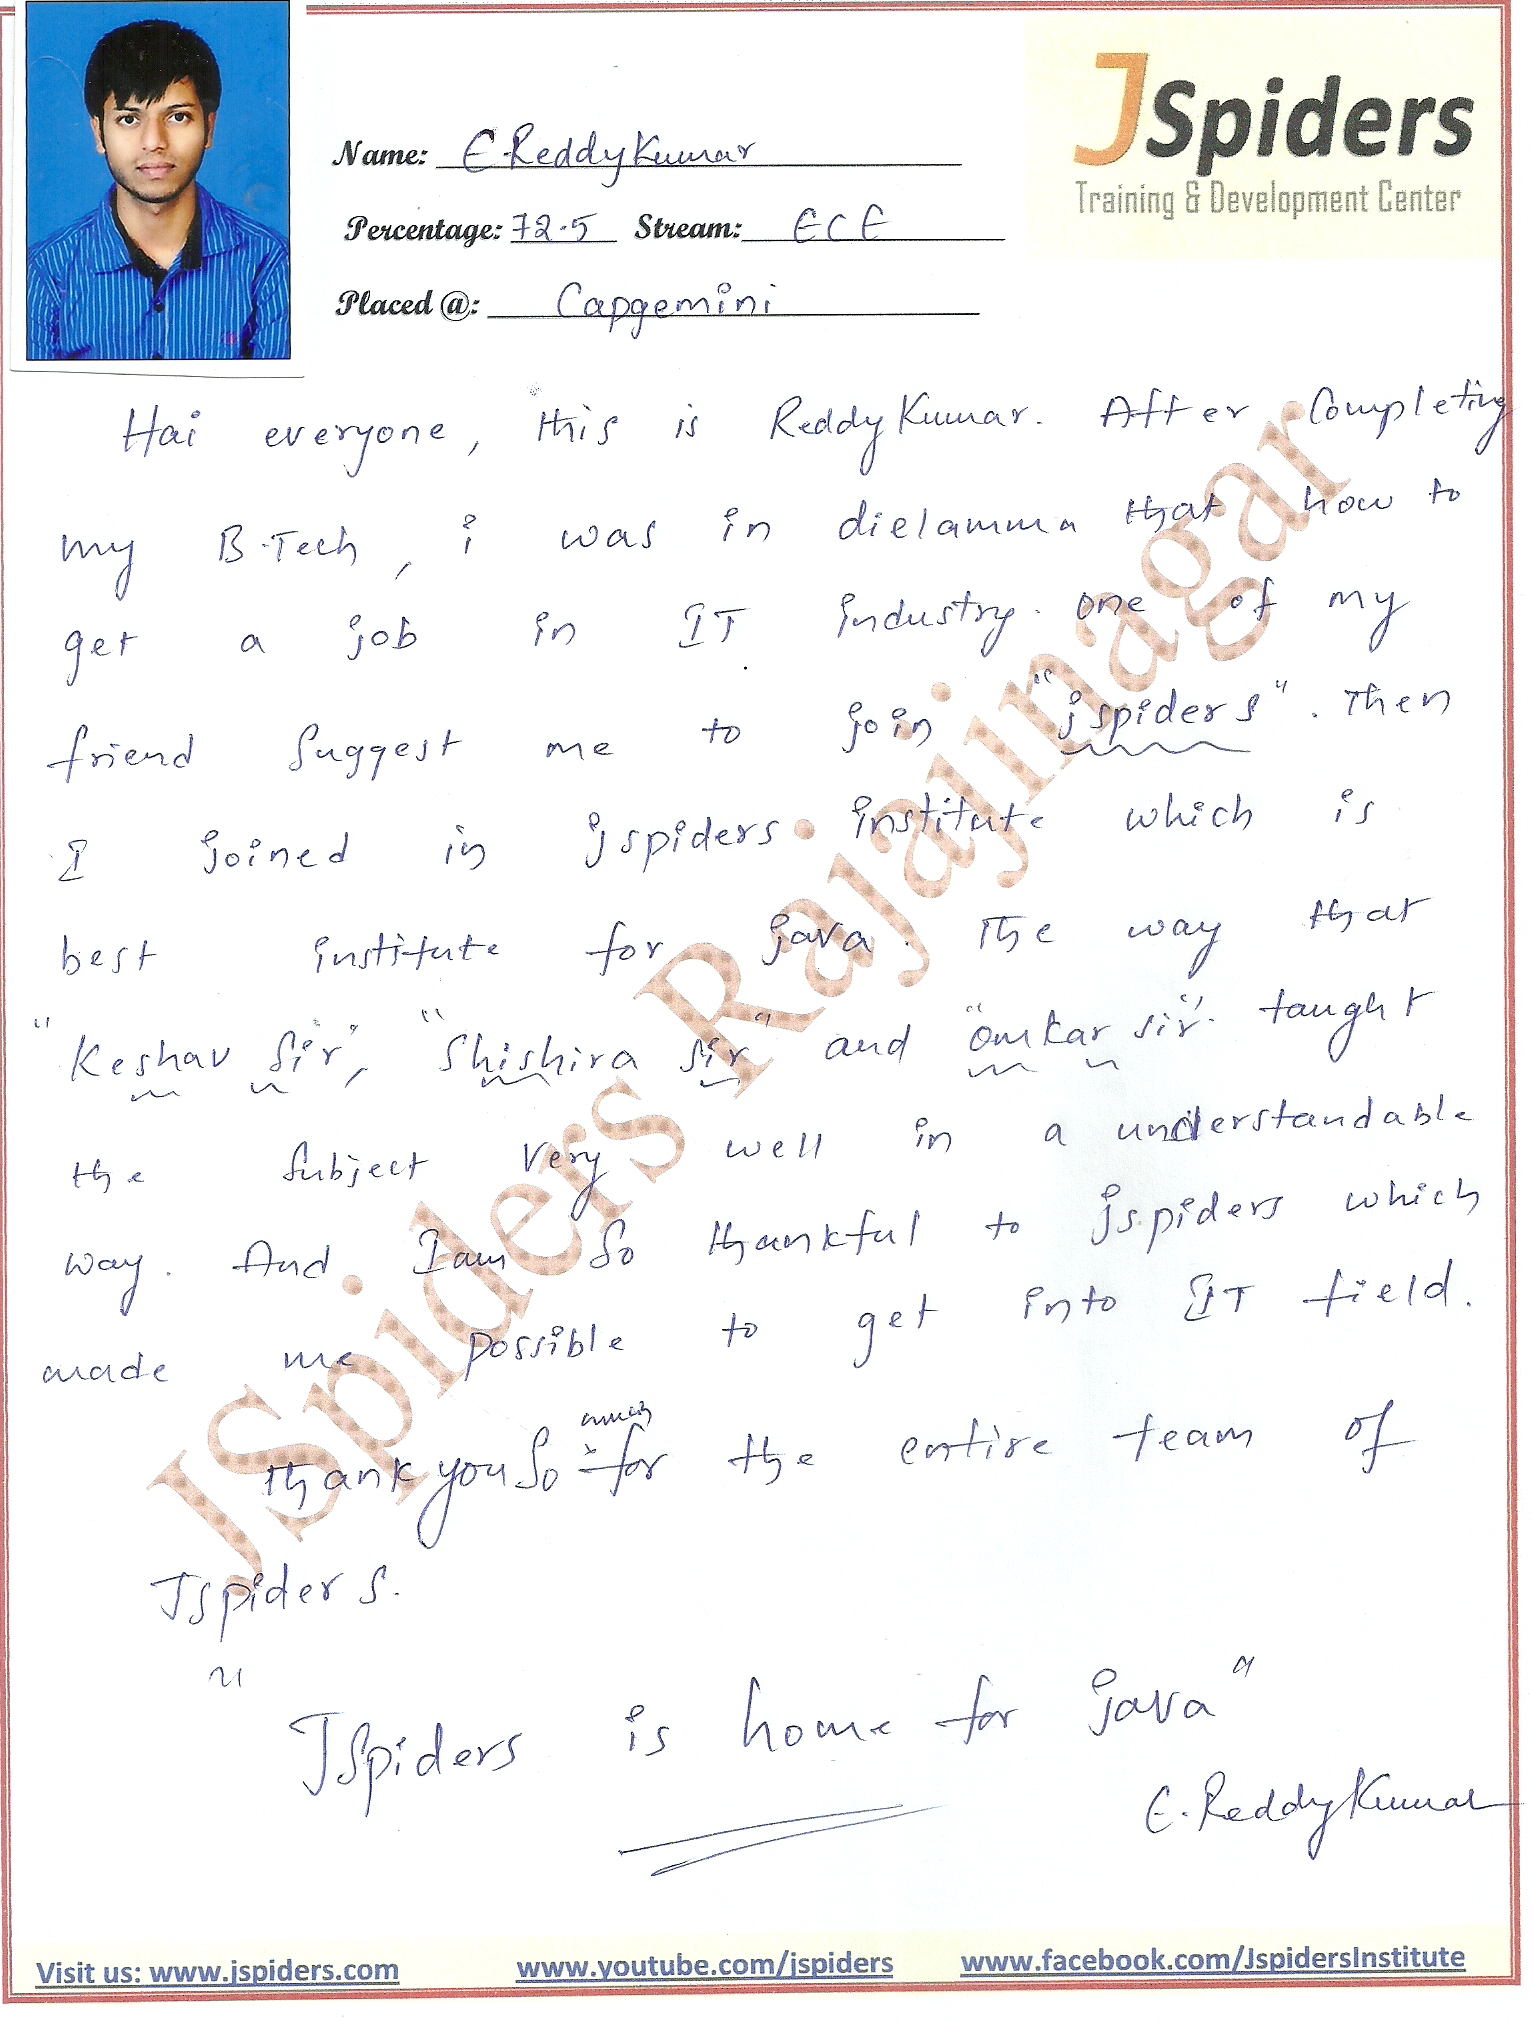 JSpiders
Training & Development Center
Name: E. ReddyKumar
Percentage: 72.5 Stream: ECE
Placed @: Capgemini
Hai everyone, this is ReddyKumar. After Completing
my B.Tech, i was in dielamma that how to
get a job in IT industry. one of my
friend suggest me to join "jspiders". Then
I joined in jspiders institute which is
best institute for java. The way that
"Keshav sir", "Shishira sir" and "omkar sir". taught
the subject very well in a understandable
way. And I am so thankful to jspiders which
made me possible to get into IT field.
much
thank you so for the entire team of
Jspiders.
"JSpiders is home for java"
E. ReddyKumar
JSpiders Rajajinagar
Visit us: www.jspiders.com www.youtube.com/jspiders www.facebook.com/JspidersInstitute